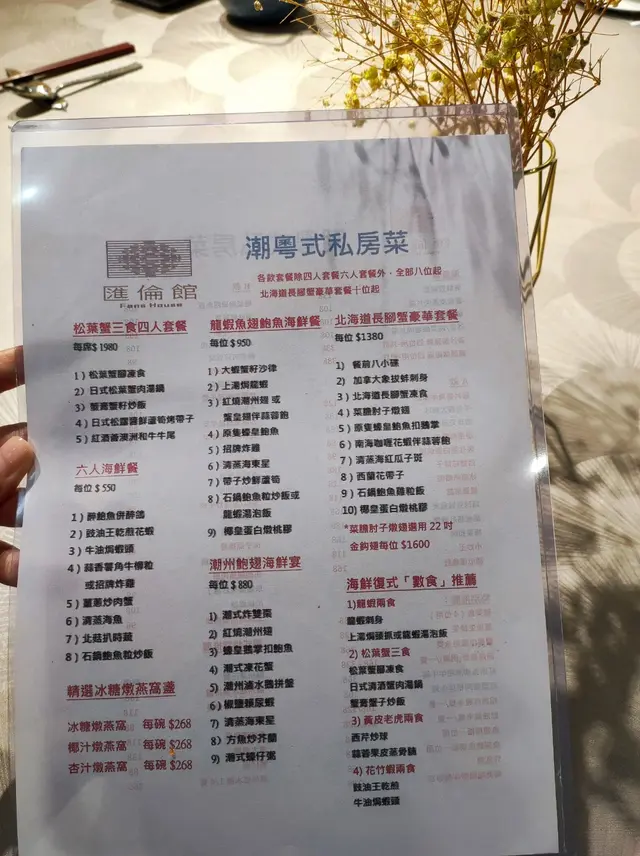 潮粵式私房菜
匯倫館
Fans House
各款套餐除四人套餐六人套餐外，全部八位起
北海道長腳蟹豪華套餐十位起
松葉蟹三食四人套餐
每席$1980
1）松葉蟹腳凍食
2）日式松葉蟹肉湯鍋
3）蟹膏蟹籽炒飯
4）日式松露醬鮮蘆筍烤帶子
5）紅酒薈澳洲和牛牛尾
六人海鮮餐
每位$550
1）醉鮑魚併醉鴿
2）豉油王乾煎花蝦
3）牛油焗蝦頭
4）蒜香薯角牛柳粒
或招牌炸雞
5）薑蔥炒肉蟹
6）清蒸海魚
7）北菇扒時蔬
8）石鍋鮑魚粒炒飯
精選冰糖燉燕窩盞
冰糖燉燕窩 每碗$268
椰汁燉燕窩 每碗$268
杏汁燉燕窩 每碗$268
龍蝦魚翅鮑魚海鮮餐
每位$950
1）大蝦蟹籽沙律
2）上湯焗龍蝦
3）紅燒潮州翅 或
蟹皇翅伴蒜蓉飽
4）原隻蠔皇鮑魚
5）招牌炸雞
6）清蒸海東星
7）帶子炒鮮蘆筍
8）石鍋鮑魚粒炒飯或
龍蝦湯泡飯
9）椰皇蛋白燉桃膠
潮州鮑翅海鮮宴
每位$880
1）潮式炸雙棗
2）紅燒潮州翅
3）蠔皇鵝掌扣鮑魚
4）潮式凍花蟹
5）潮州滷水鵝拼盤
6）椒鹽瀨尿蝦
7）清蒸海東星
8）方魚炒芥蘭
9）潮式蠔仔粥
北海道長腳蟹豪華套餐
每位$1380
1）餐前八小碟
2）加拿大象拔蚌刺身
3）北海道長腳蟹凍食
4）菜膽肘子燉翅
5）原隻蠔皇鮑魚扣鵝掌
6）南海咖喱花蝦伴蒜蓉飽
7）清蒸海紅瓜子斑
8）西蘭花帶子
9）石鍋鮑魚雞粒飯
10）椰皇蛋白燉桃膠
*菜膽肘子燉翅選用22吋
金鈎翅每位$1600
海鮮復式「數食」推薦
1)龍蝦兩食
龍蝦刺身
上湯焗頭抓或龍蝦湯泡飯
2) 松葉蟹三食
松葉蟹腳凍食
日式清酒蟹肉湯鍋
蟹膏蟹子炒飯
3) 黃皮老虎兩食
西芹炒球
蒜蓉果皮蒸骨腩
4) 花竹蝦兩食
豉油王乾煎
牛油焗蝦頭